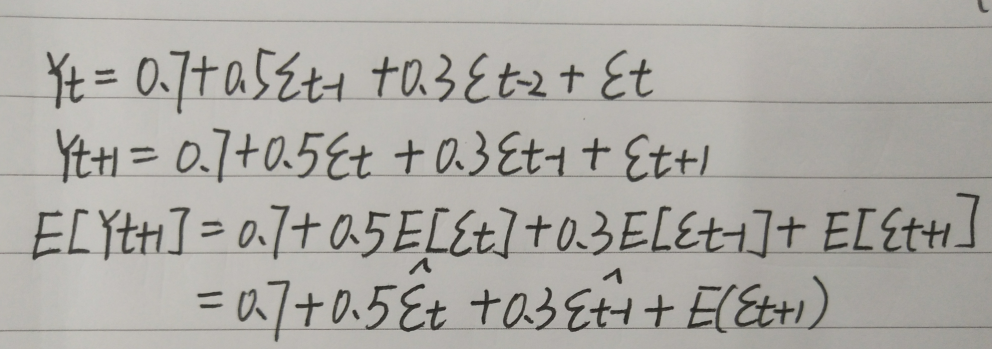 Yt = 0.7+0.5εt-1 +0.3εt-2 + εt
Yt+1 = 0.7+0.5εt + 0.3εt-1 + εt+1
E[Yt+1] = 0.7+0.5E[εt]+0.3E[εt-1]+ E[εt+1]
= 0.7+0.5ε̂t +0.3ε̂t-1 + E(εt+1)